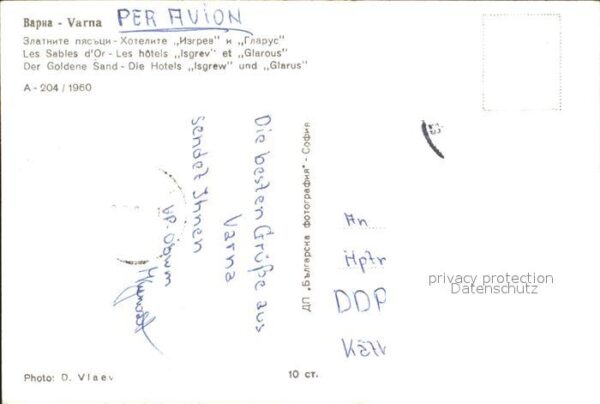 Варна - Varna PER AVION
Златните пясъци - Хотелите „Изгрев" и „Гларус"
Les Sables d'Or - Les hôtels „Isgrev" et „Glarous"
Der Goldene Sand - Die Hotels „Isgrew" und „Glarus"
А - 204 / 1960
Die besten Grüße aus
Varna
sendet Ihnen
ДП „Българска фотография" - София
An
DDP
privacy protection
Datenschutz
Photo: D. Vlaev
10 ст.